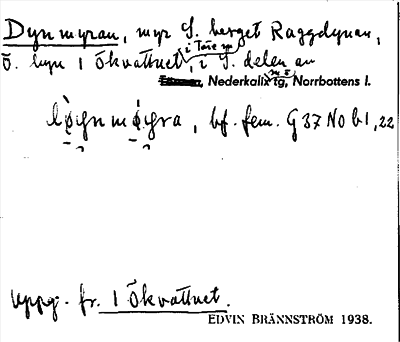 Dynmyran, myr S. berget Raggdynan,
i Töre sn
ö. byn 1 Ökvattnet, i S. delen av
Nederkalix tg, Norrbottens l.
bf. fem. G 37 No b 1, 22
Uppg. fr. 1 Ökvattnet.
EDVIN BRÄNNSTRÖM 1938.